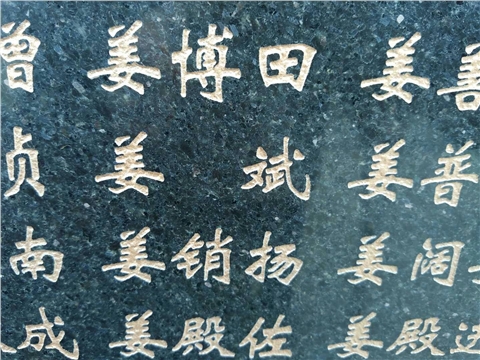 曾 姜博田 姜善
贞 姜 斌 姜普
南 姜销扬 姜阔
成 姜殿佐 姜殿进